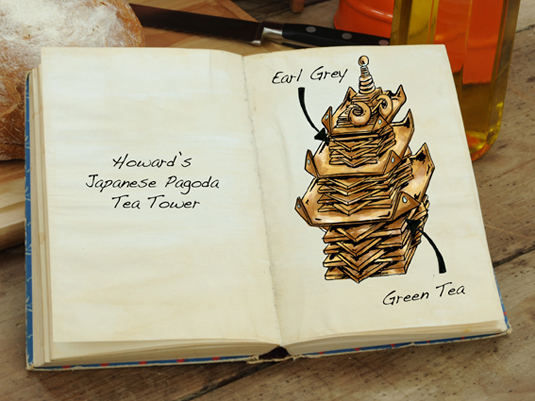 Howard's
Japanese Pagoda
Tea Tower
Earl Grey
Green Tea